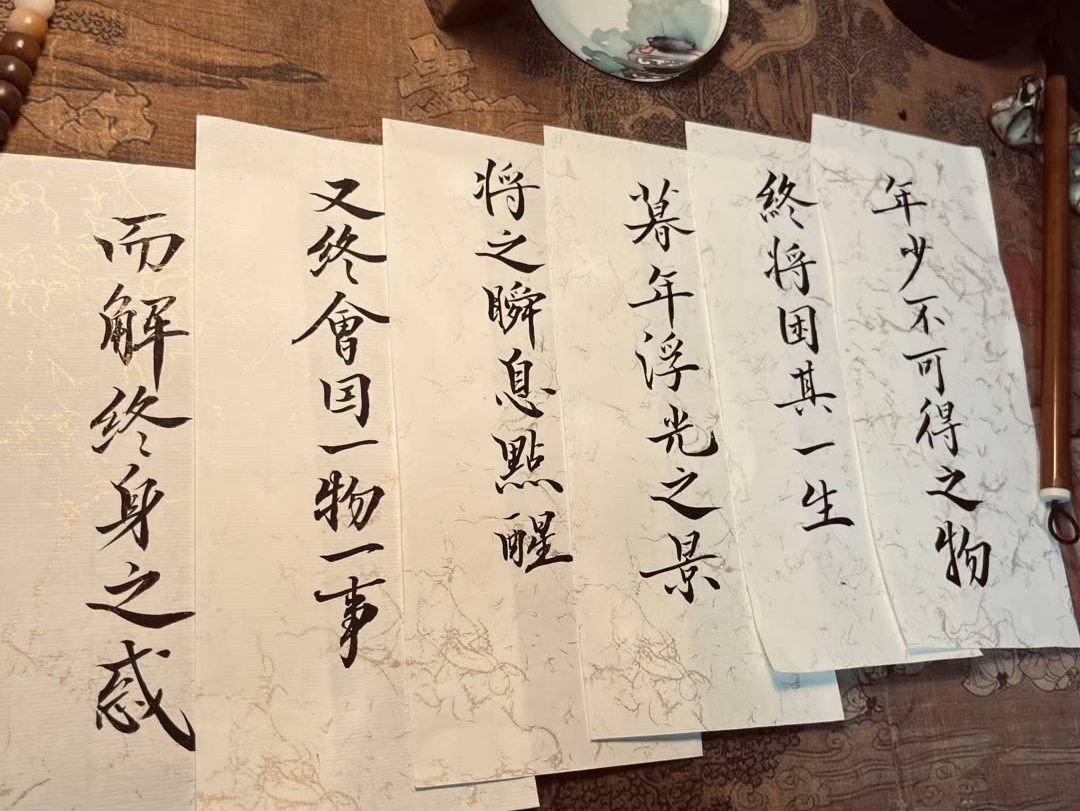 年少不可得之物
終将困其一生
暮年浮光之景
将之瞬息點醒
又終會因一物一事
而解終身之惑